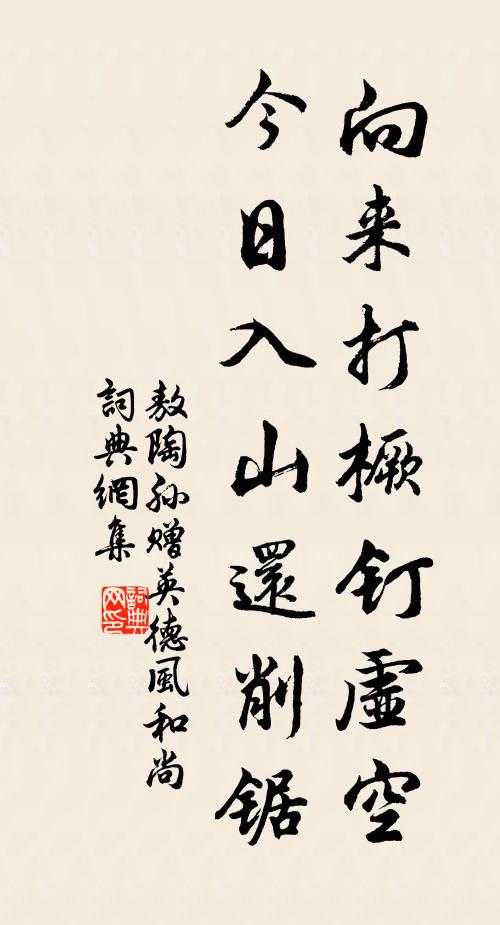 向来打橛釘虛空
今日入山還削鋸
敖陶孙赠英德風和尚
詞典網集
詞典网印